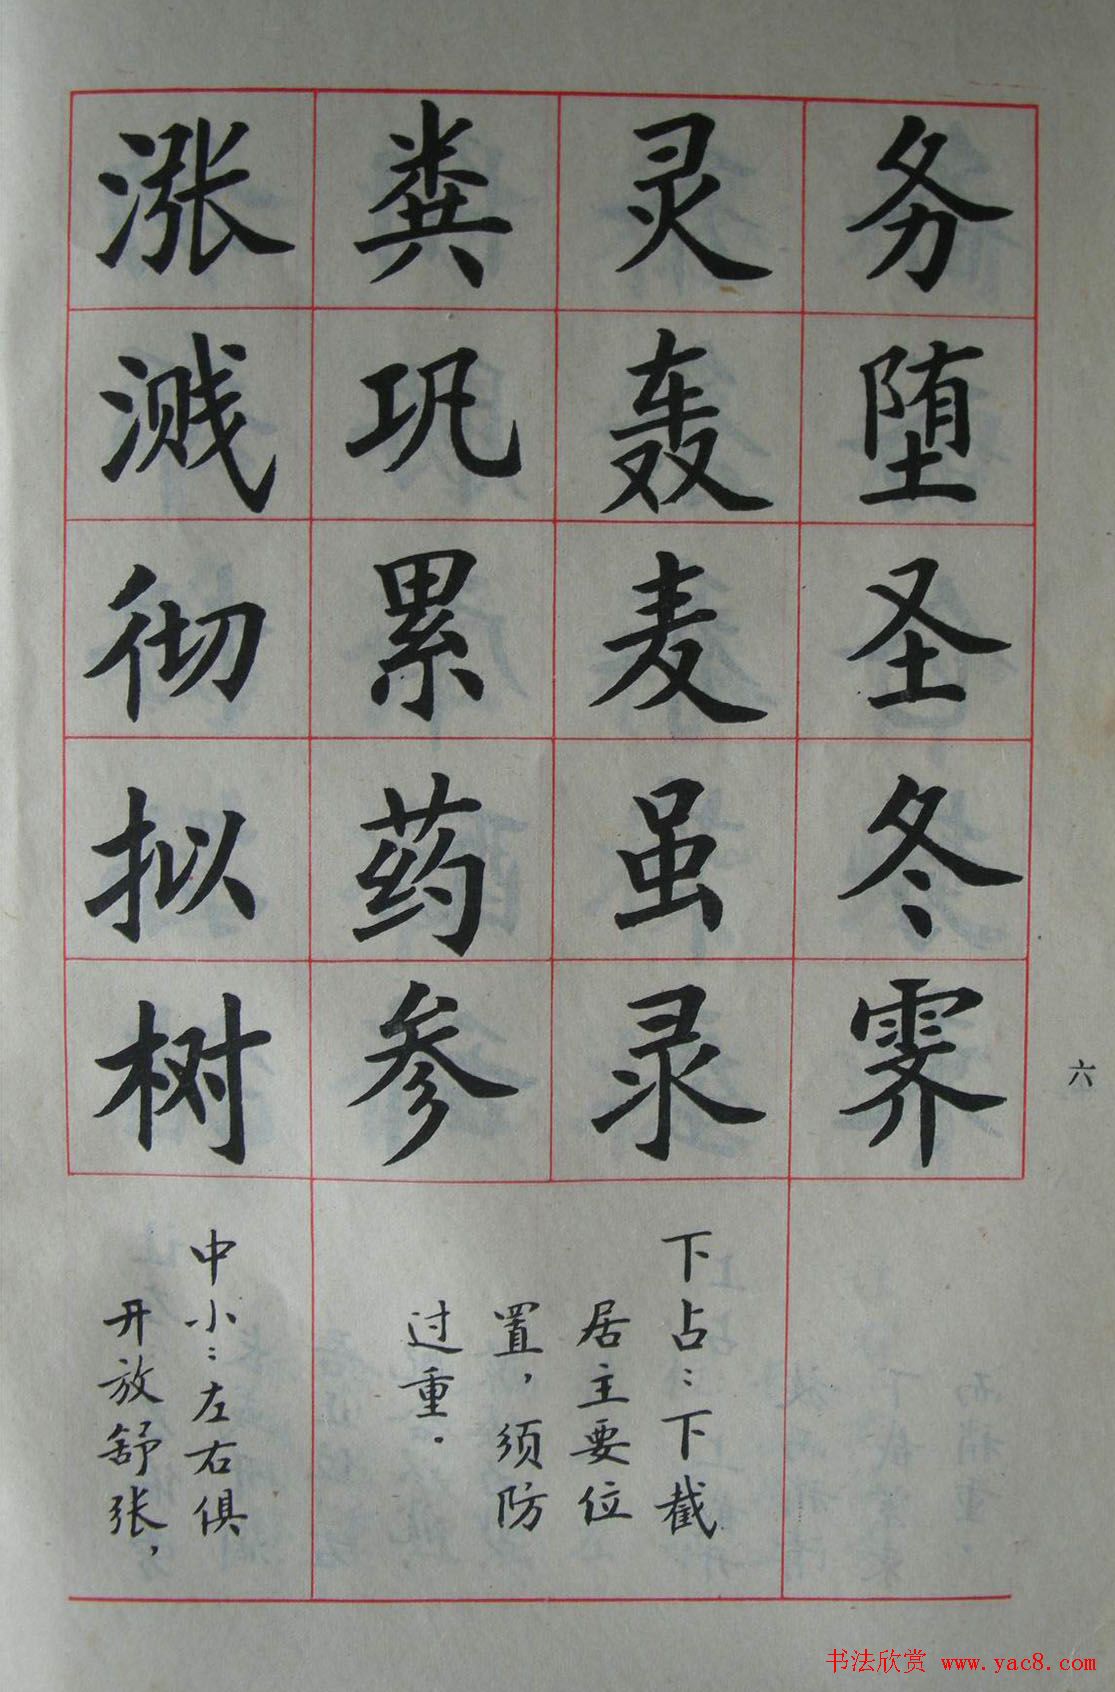 务堕圣冬霁
灵轰麦虽录
粪巩累药参
涨溅彻拟树
下占：下截
居主要位
置，须防
过重．
中小：左右俱
开放舒张，
六
书法欣赏 www.yac8.com